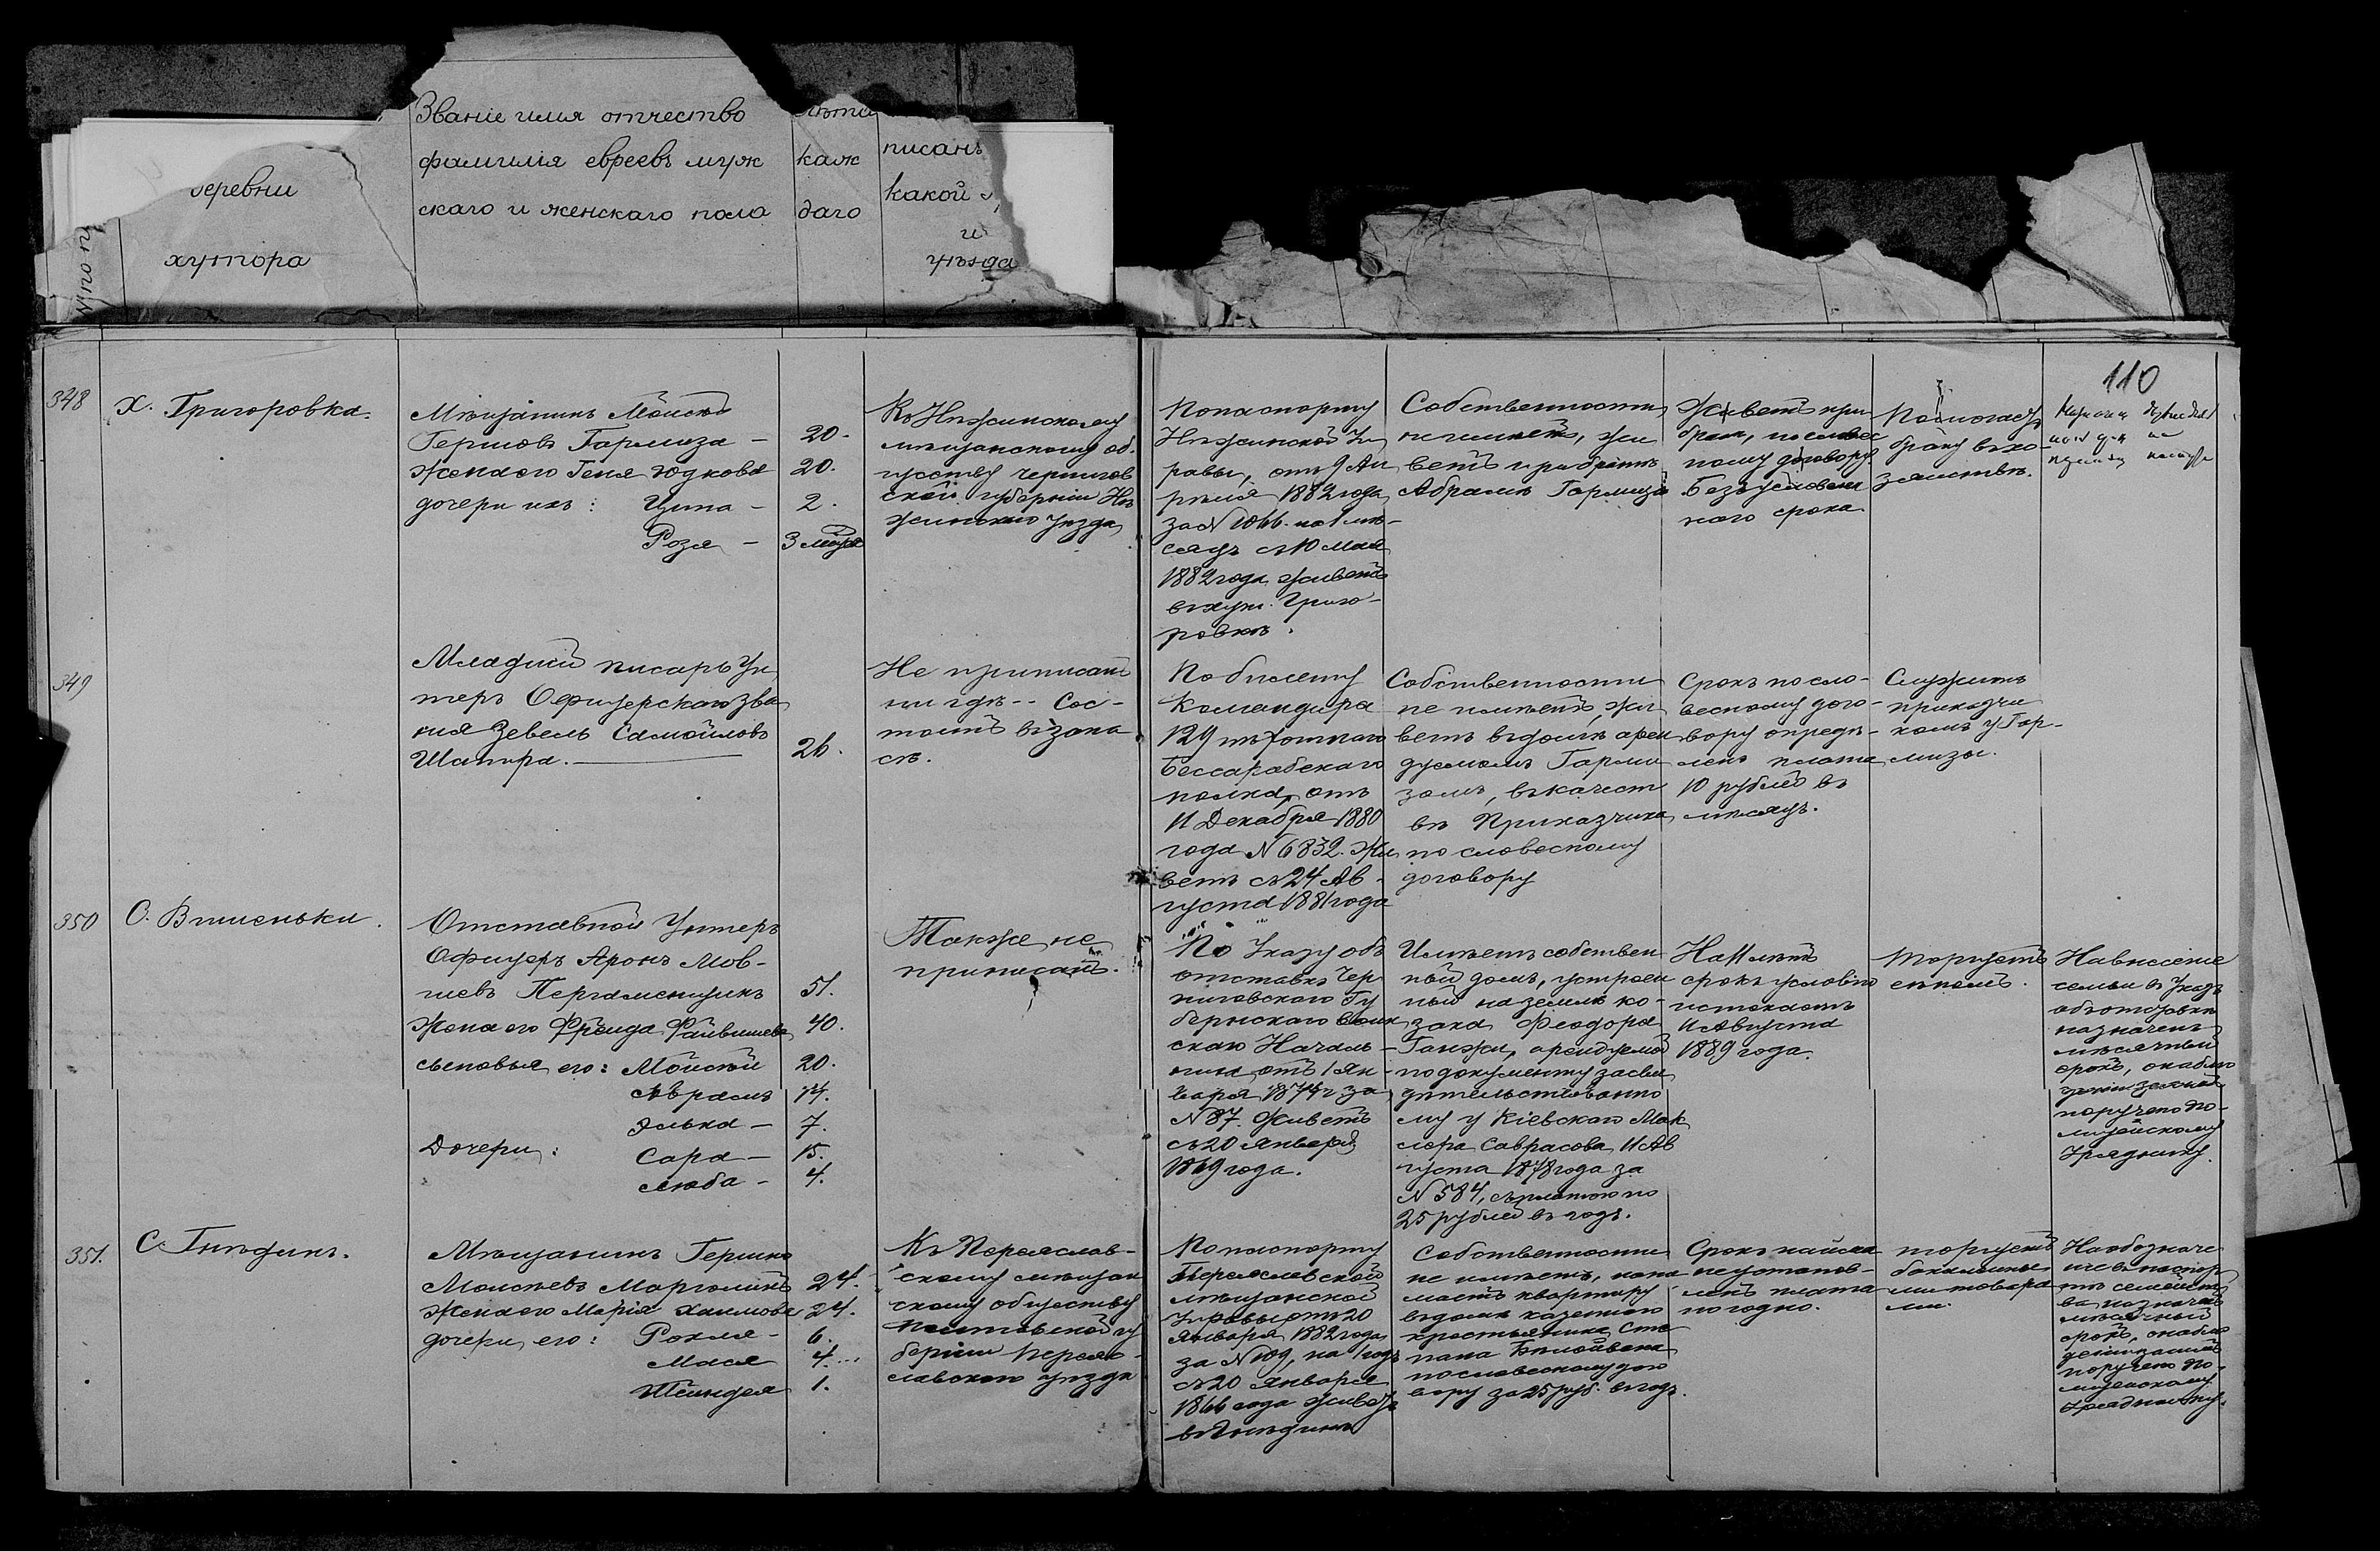 Званіе имя отчество
фамилія евреевъ муж
скаго и женскаго пола
лѣта
каж
даго
писанъ
какой
и
уѣзда
деревни
хутора
110
348
Х. Григоровка.
Мѣщанинъ Мойсей
Гершовъ Гармиза —
20.
Жена его Геня Юдкова
20.
дочери ихъ: Ципа —
2.
Роза —
3 мѣся
Къ Нѣжинскому
мѣщанскому об
ществу Чернигов
ской губерніи Нѣ
жинскаго уѣзда
По паспорту
Нѣжинской Уп
равы, отъ 9 Ап
рѣля 1882 года
за № 1066. на 1 мѣ-
сяцъ съ 10 Мая
1882 года живетъ
въ хут. Григо-
ровкѣ.
Собственности
не имѣетъ, жи
ветъ при братѣ
Абрамѣ Гармизѣ
Живетъ при
братѣ, по словес
ному договору
Безъ условлен
наго срока
Помогаетъ
брату въ хо-
зяйствѣ.
349
Младшій писарь Ун
теръ Офицерскаго зва
нія Зевель Самойловъ
Шапира. —
26.
Не приписанъ
ни гдѣ -- Сос-
тоитъ въ запа
сѣ.
По билету
Командира
129 пѣхотнаго
Бессарабскаго
полка, отъ
11 Декабря 1880
года № 6832. Жи
ветъ съ 24 Ав-
густа 1881 года
Собственности
не имѣетъ, жи
ветъ въ домѣ арен
дуемомъ Гарми
зомъ, въ качест
вѣ Приказчика
по словесному
договору
Срокъ по сло-
весному дого-
вору опредѣ-
ленъ плата
10 рублей въ
мѣсяцъ.
Служитъ
приказчи
комъ у Гар-
мизы.
350
С. Вишеньки.
Отставной Унтеръ
Офицеръ Аронъ Мов-
шевъ Пергаменщикъ
51.
Жена его Фрейда Файвишева
40.
сыновья его: Мойсей
20.
Абрамъ
14.
Элька —
7.
Дочери: Сара —
15.
Люба —
4.
Также не
приписанъ.
По Указу объ
отставкѣ Чер
ниговскаго Гу
бернскаго Воин
скаго Началь-
ника отъ 1 Ян-
варя 1874 г за
№ 87. Живетъ
съ 20 Января
1869 года.
Имѣетъ собствен
ный домъ, устроен
ный на землѣ ко-
зака Феодора
Ганжи, арендуемой
по документу засви
дѣтельствованно
му у Кіевскаго Мак
лера Саврасова 11 Ав
густа 1878 года за
№ 584, съ платою по
25 рублей въ годъ.
На 11 лѣтъ
срокъ условію
истекаетъ
11 Августа
1889 года.
Торгуетъ
Невнесеніе
семьи въ Указъ
объ отставкѣ
назначенъ
мѣсячный
срокъ, о наблю
поручено По-
лицейскому
Уряднику.
351.
С. Гнѣдинъ.
Мѣщанинъ Гершко
Моисеевъ Марголинъ
24.
Жена его Марія Хаимова
24.
дочери его: Рохля —
6.
Мася
4.
Шейндля
1.
Къ Переяслав-
скому мѣщан
скому обществу
Полтавской гу
берніи Переяс-
лавскаго уѣзда
По паспорту
Переяславской
мѣщанской
Управы отъ 20
Января 1882 года
за № 109, на 1 годъ
съ 20 Января
1866 года живетъ
въ Гнѣдинѣ
Собственности
не имѣетъ, нани
маетъ квартиру
въ домѣ казеннаго
крестьянина Сте
пана
по словесному дого
вору за 25 руб. въ годъ.
Срокъ найма
не установ-
ленъ плата
погодно.
торгуетъ
бакалейны
ми товара
ми.
Необозначе
ніе въ паспор
тѣ семейст
ва назначенъ
мѣсячный
срокъ, о наблю
поручено По-
лицейскому
Уряднику.